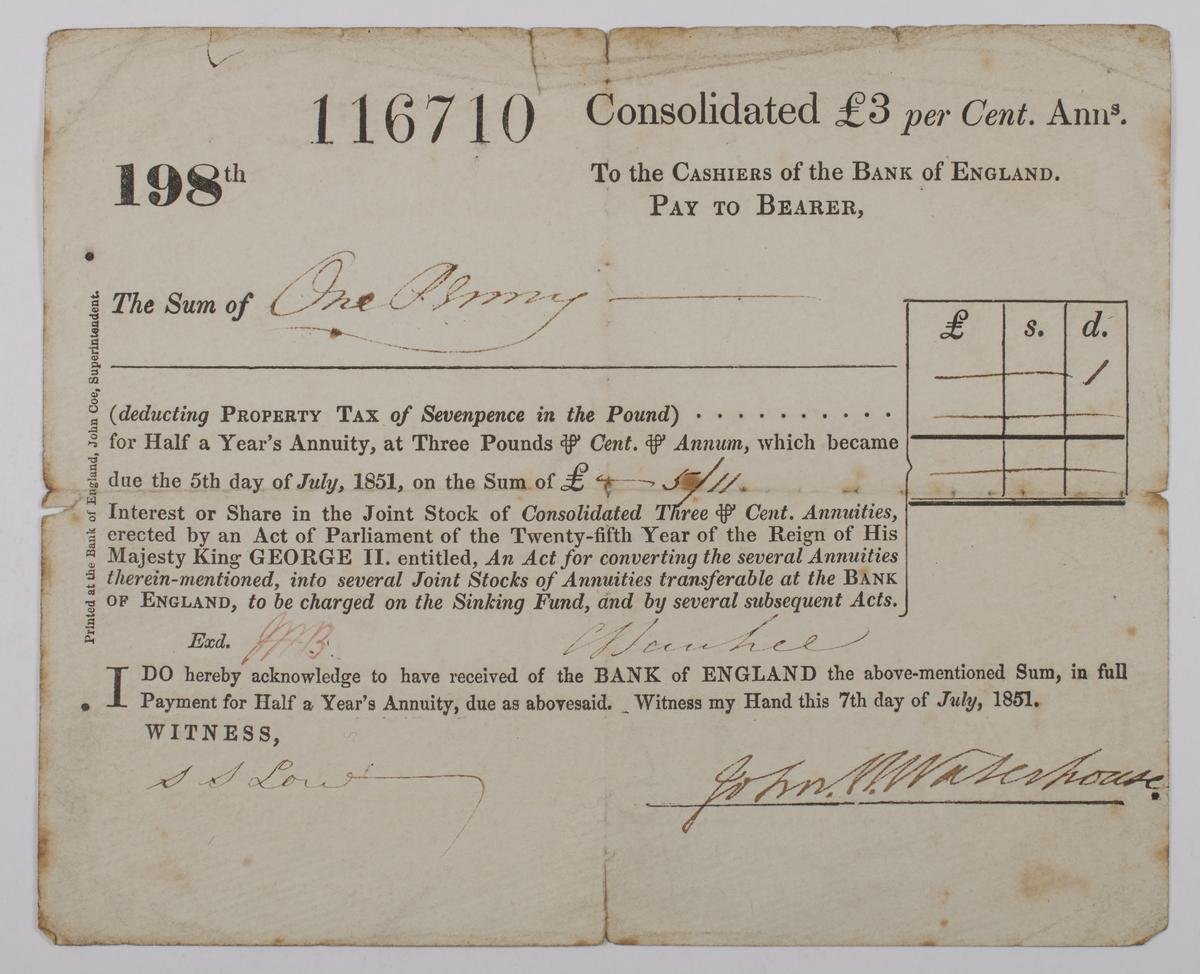 116710 Consolidated £3 per Cent. Annˢ.
198th
To the CASHIERS of the BANK of ENGLAND.
PAY TO BEARER,
The Sum of One Penny
£ s. d.
1
(deducting PROPERTY TAX of Sevenpence in the Pound) . . . . . . . . . . .
for Half a Year's Annuity, at Three Pounds ⅌ Cent. ⅌ Annum, which became
due the 5th day of July, 1851, on the Sum of £ — 5/11
Interest or Share in the Joint Stock of Consolidated Three ⅌ Cent. Annuities,
erected by an Act of Parliament of the Twenty-fifth Year of the Reign of His
Majesty King GEORGE II. entitled, An Act for converting the several Annuities
therein-mentioned, into several Joint Stocks of Annuities transferable at the BANK
OF ENGLAND, to be charged on the Sinking Fund, and by several subsequent Acts.
Exd.
I DO hereby acknowledge to have received of the BANK of ENGLAND the above-mentioned Sum, in full
Payment for Half a Year's Annuity, due as abovesaid. Witness my Hand this 7th day of July, 1851.
WITNESS,
S S Low
John. W. Waterhouse.
Printed at the Bank of England, John Coe, Superintendent.